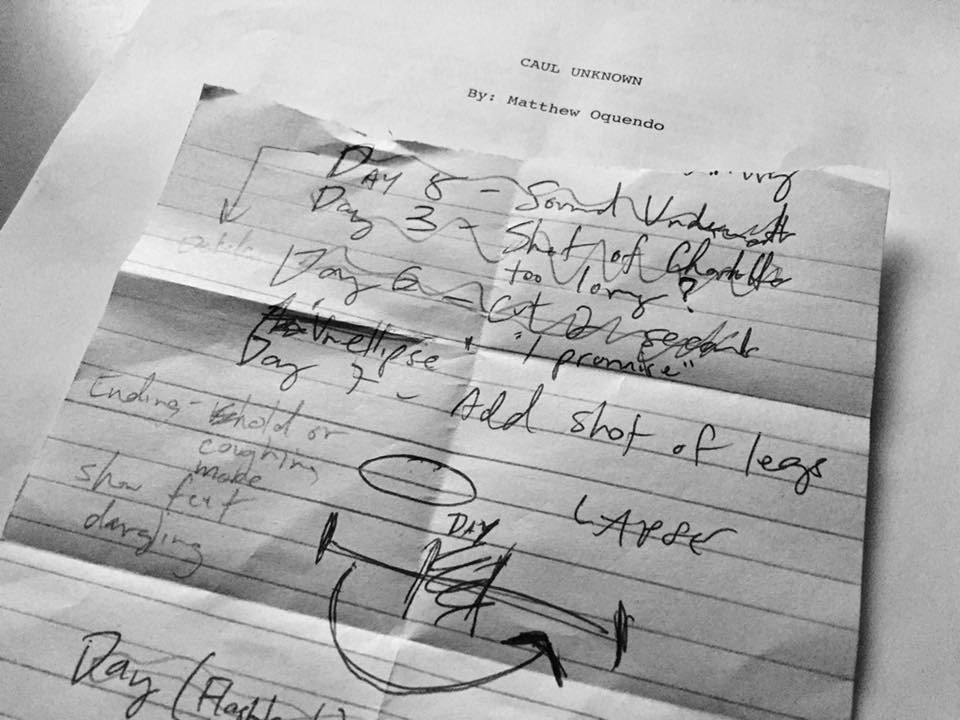 CAUL UNKNOWN
By: Matthew Oquendo
DAY 8 - Sound Underneath
Day 3 - Shot of Charlotte
too long?
Day 6 - Cut 2 seconds
Vnellipse "I promise"
Day 7 - Add shot of legs
Ending - hold or
coughing
make
show feet
dangling
LAPSE
DAY
Day (Flashback)